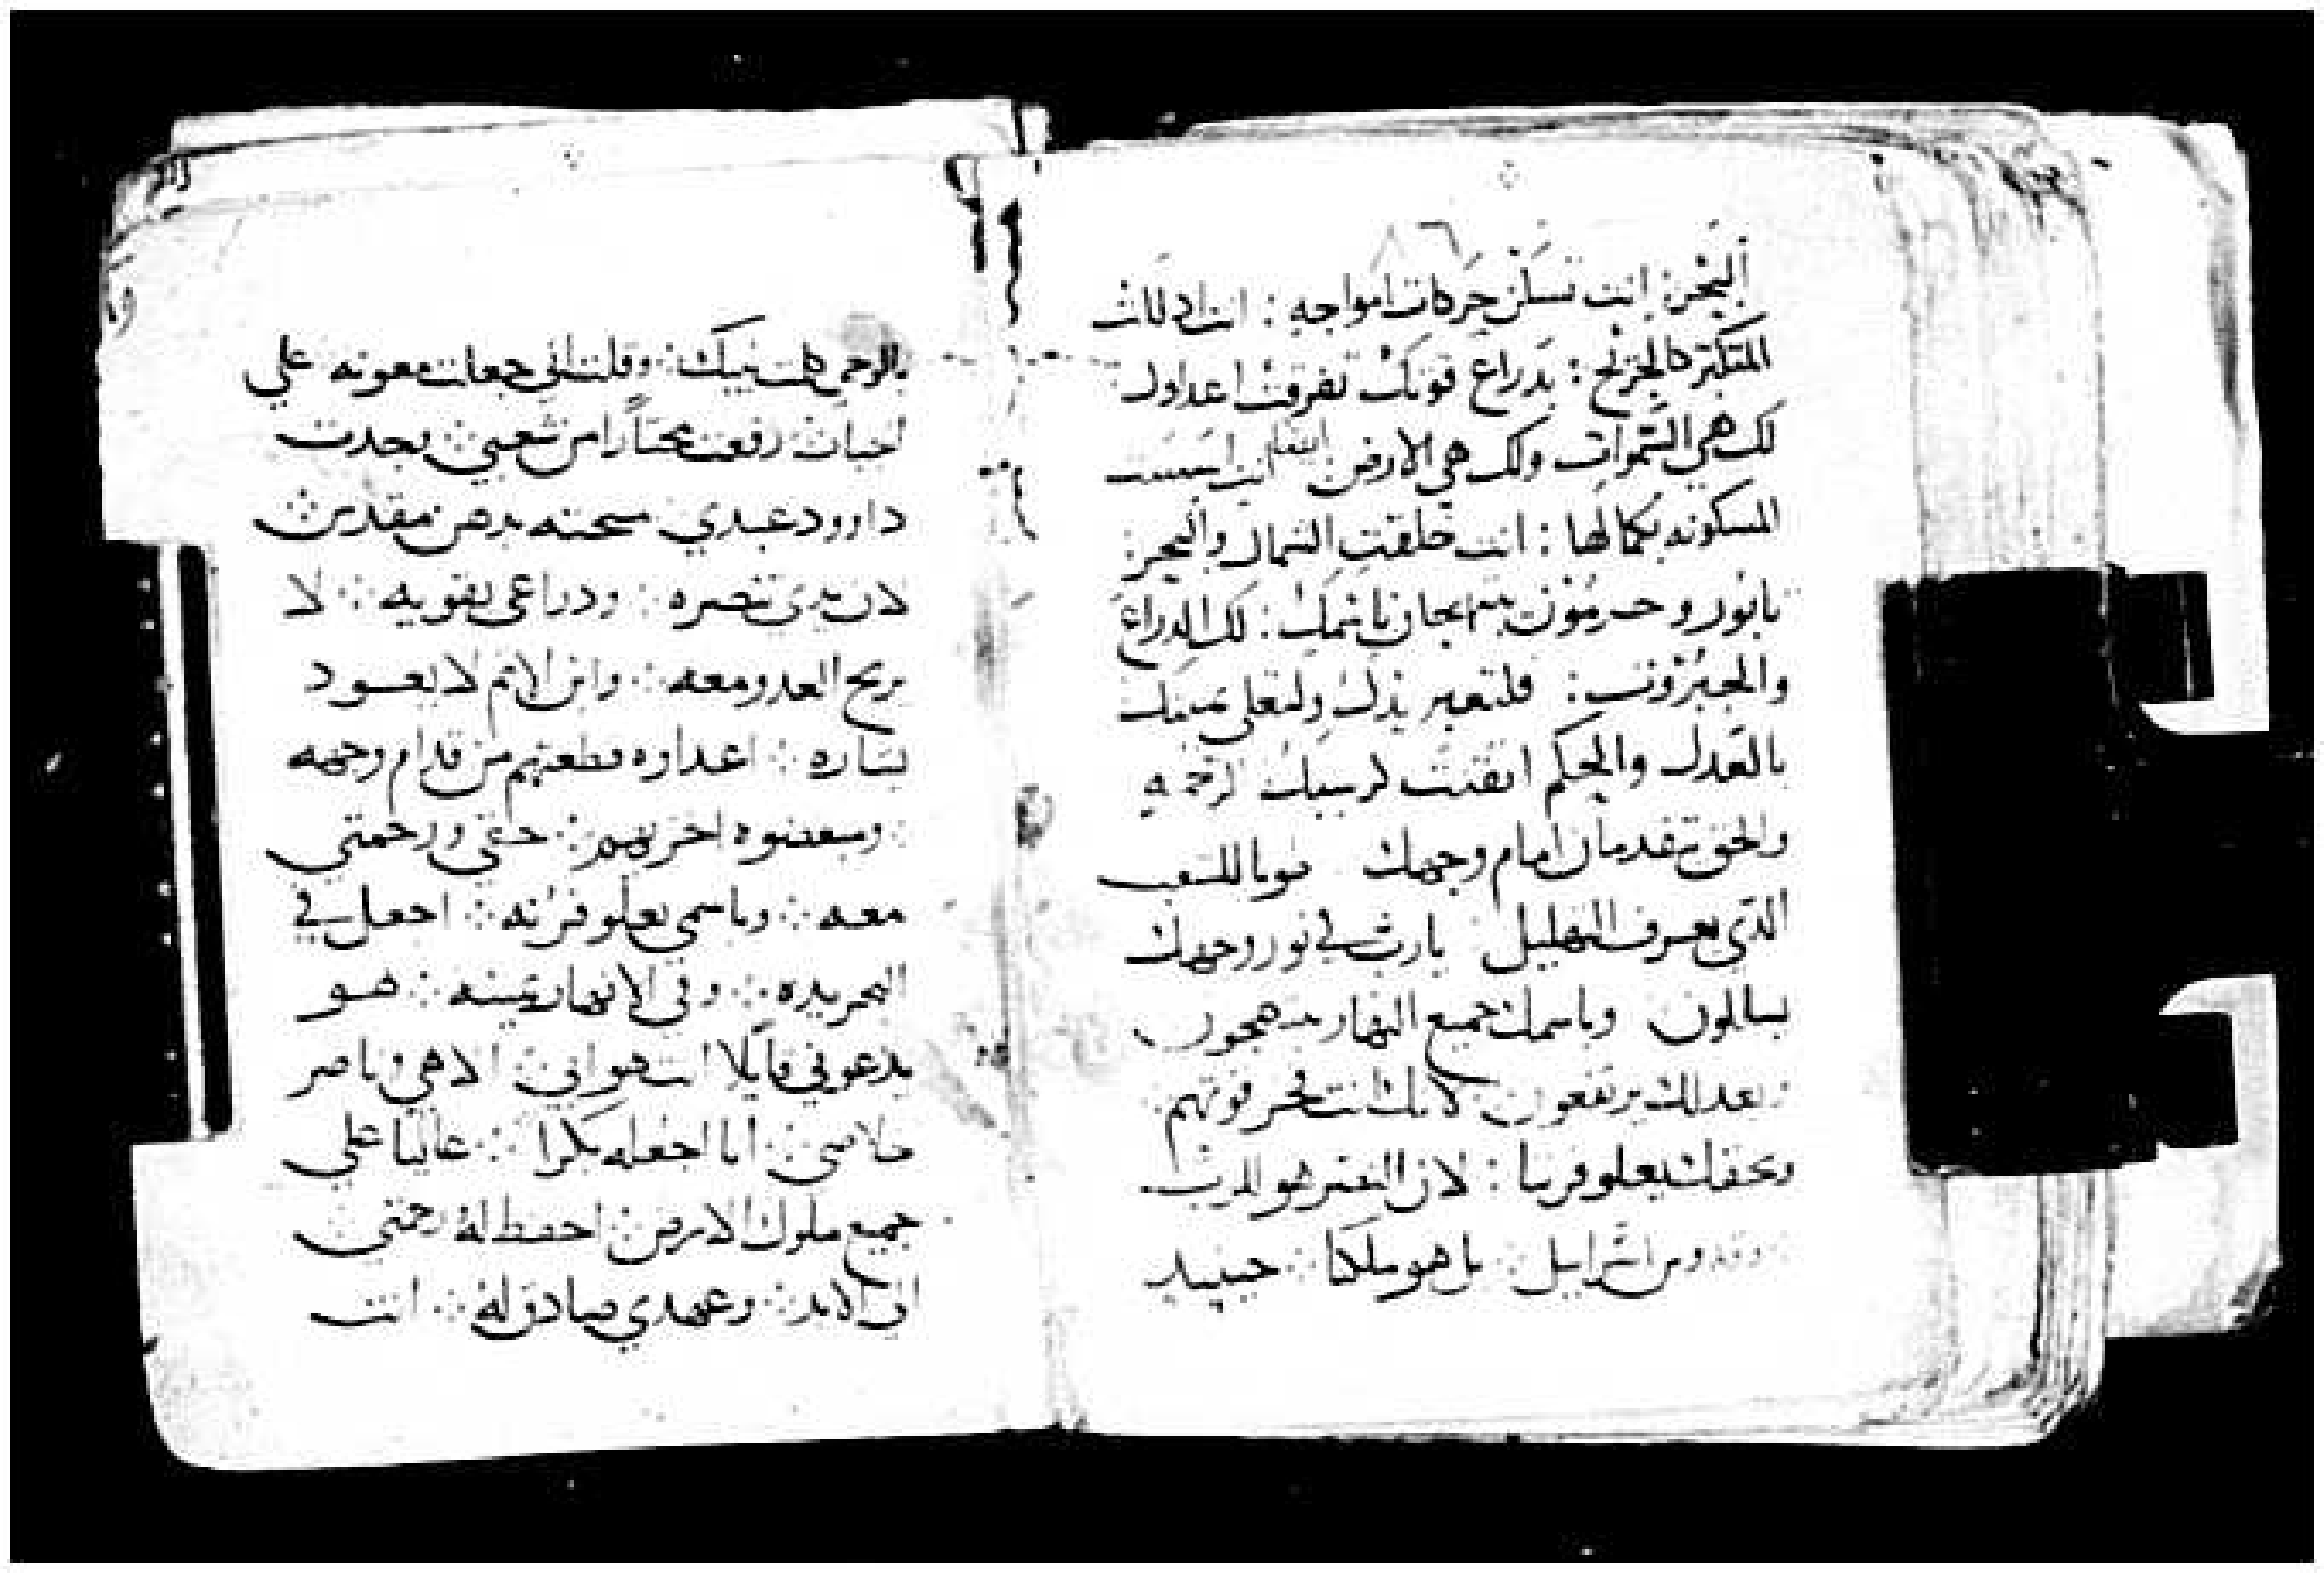 البحر: انت تسكن حركات امواجه : انت اذللت
المتكبر كالجريح : بدراع قوتك تفرقت اعداوك
لك هي السموات ولك هي الارض ايضا انت اسست
المسكونه بكمالها : انت خلقت الشمال والبحر :
تابور وحرمون يبتهجان باسمك : لك الدراع
والجبروت : فلتعتز يدك ولتعلي يمينك
بالعدل والحكم اتقنت كرسيك الرحمه
والحق يتقدمان امام وجهك طوبا للشعب
الذي يعرف التهليل يارب في نور وجهك
يسالكون وباسمك جميع النهار يبتهجون
وبعدلك يرتفعون : لانك انت فخر قوتهم
وبحقك يعلو قرننا : لان النصر هو للرب
وقدوس اسراييل : با هو ملكنا : حينيد
بالوحي كلمت بنيك : وقلت اني جعلت معونه علي
رفعت مختاراً من شعبي : وجدت
داوود عبدي : مسحته بدهن مقدس
لان يدي تنصره : ودراعي تقويه : لا
يربح العدو معه : وابن الاتم لا يعود
يتاره : اعداوه قطعتهم من قدام وجهه
ومبغضوه اخزيهم : حقي ورحمتي
معه : وباسمي يعلو قرنه : اجعل في
البحر يده : وفي الانهار يمينه : هو
يدعوني قايلا انت هو ابي : الاهي وناصر
خلاصي : انا اجعله بكرا : عاليا علي
جميع ملوك الارض : احفظ له رحمتي
الي الابد : وعهدي صادق له : انت